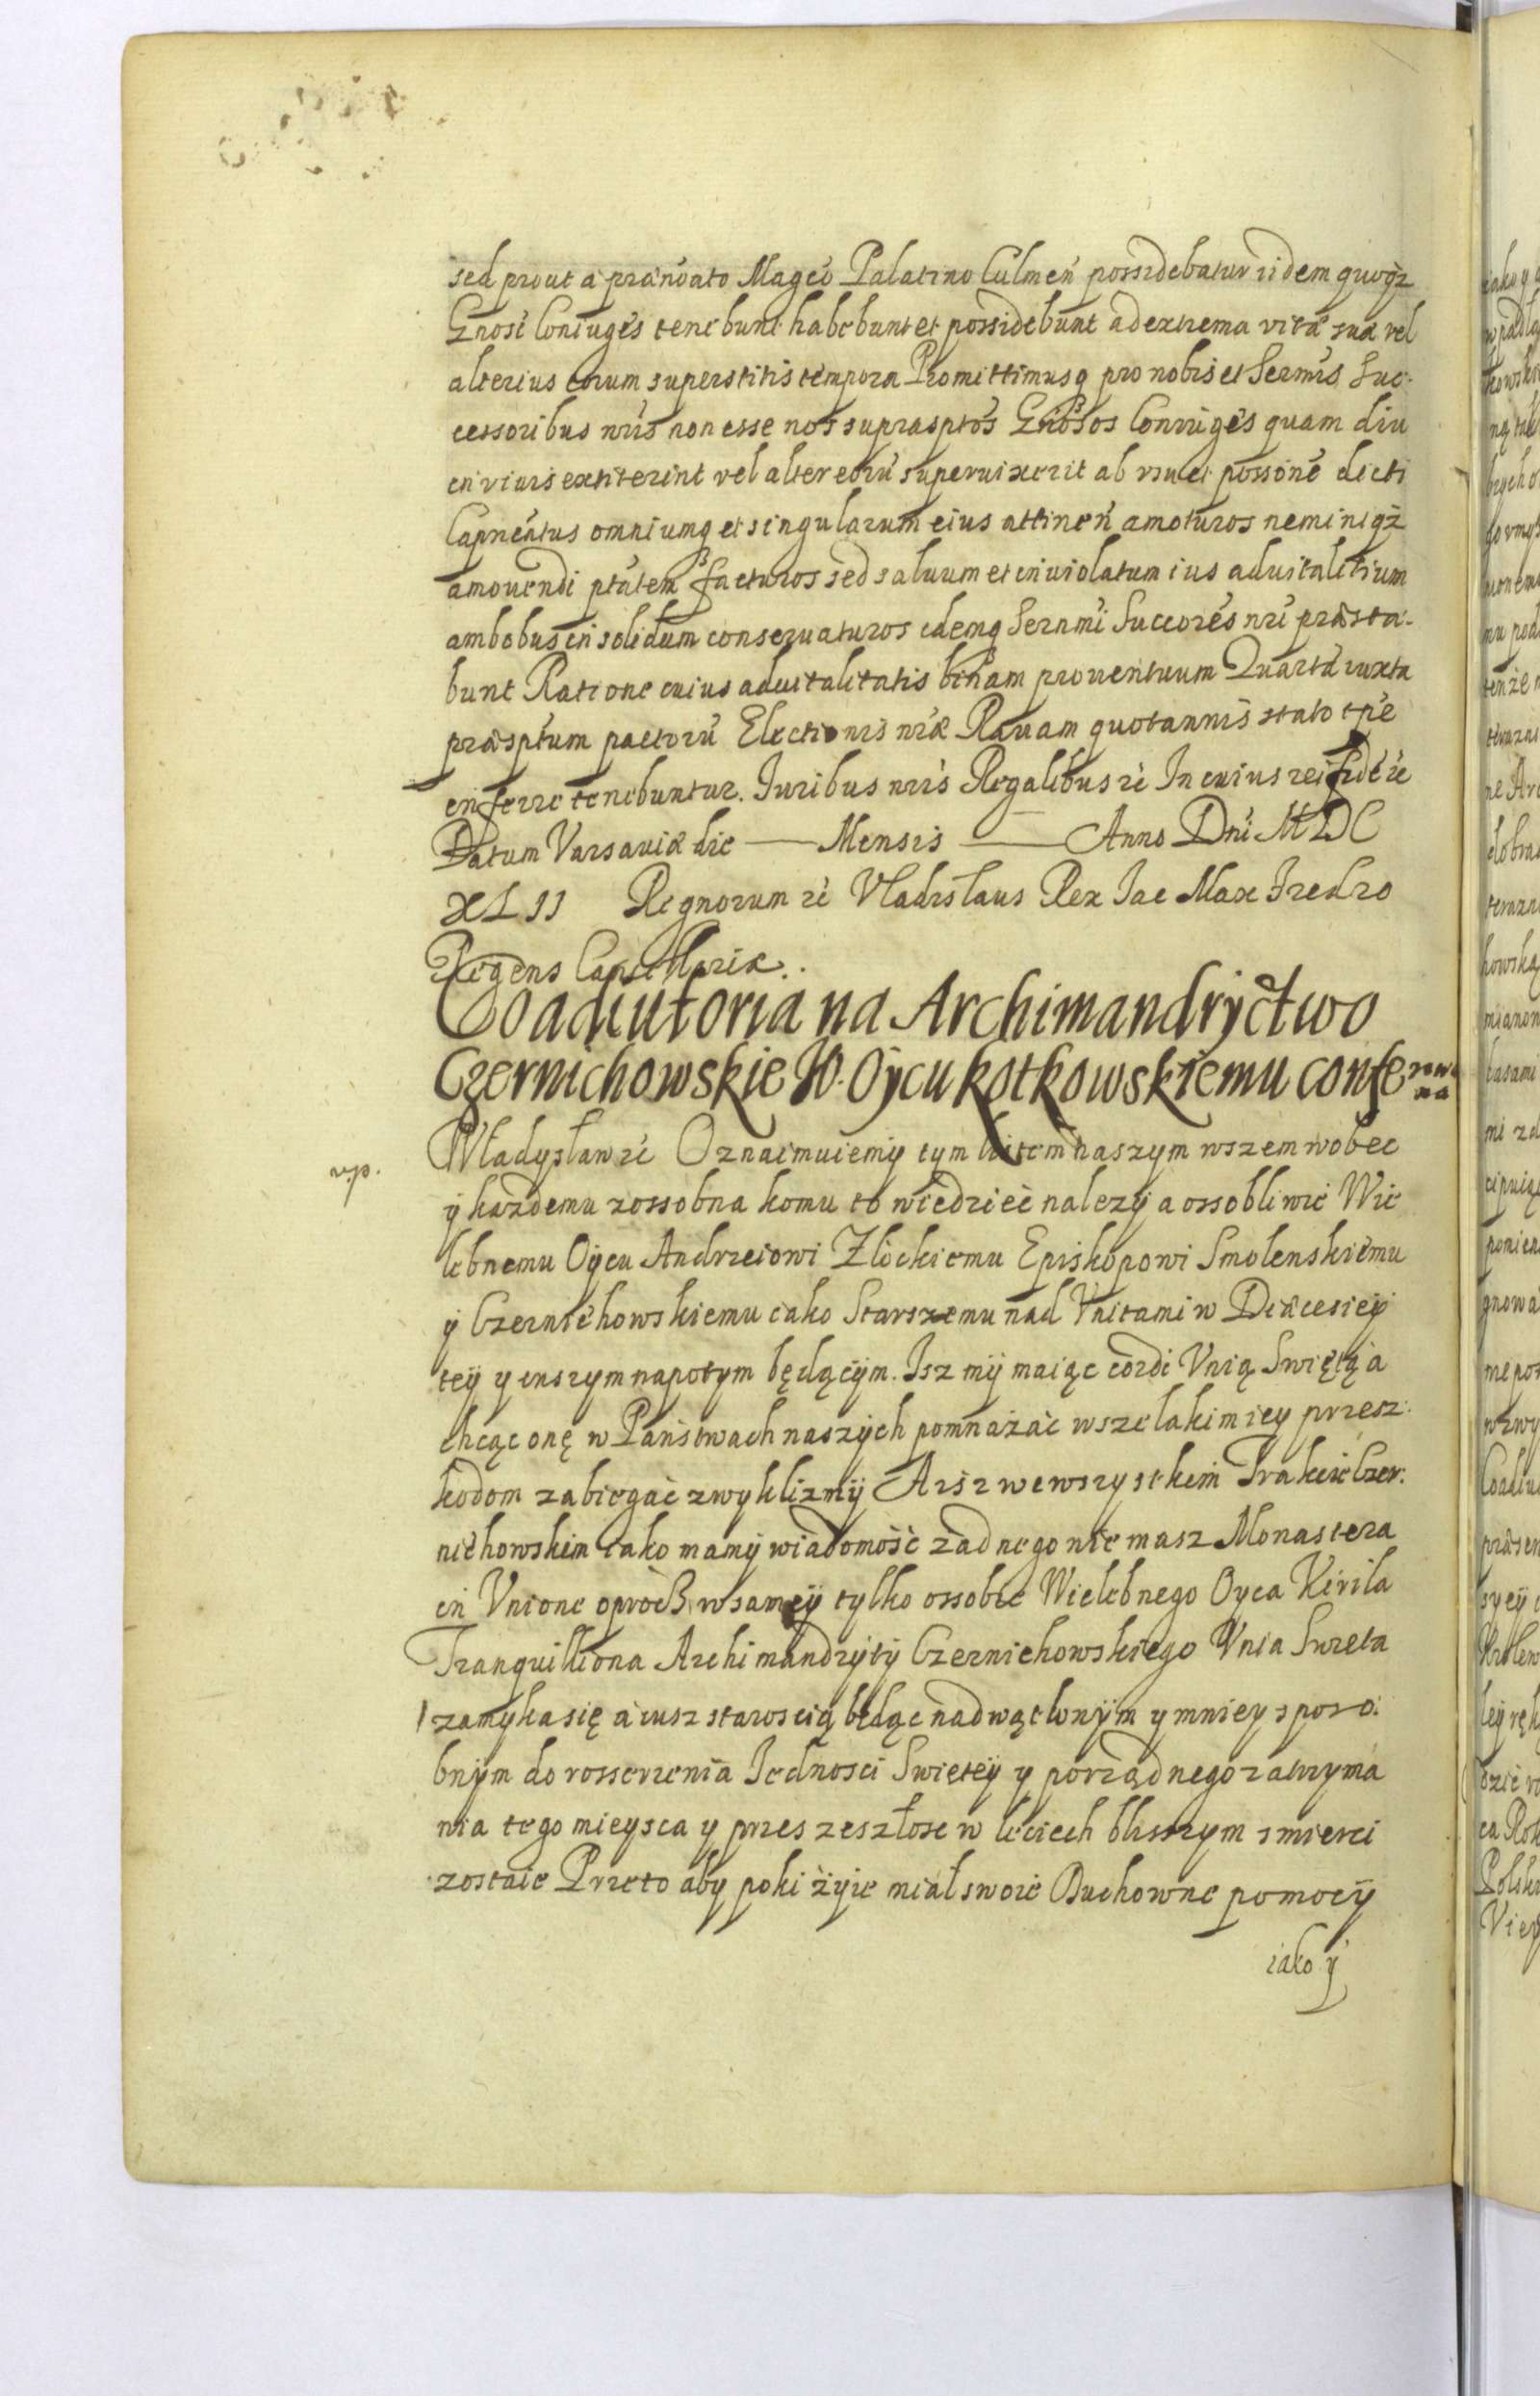 sed prout à prænoato Mageo Palatino Culmeń possidebatur iidem quoqz
Gnosi Coniuges tenebunt habebunt et possidebunt ad extrema vitæ suæ vel
alterius eorum superstitis tempora Promittimusq pro nobis et Sermis Suc-
cessoribus nris non esse nos suprasptos Gnosos Coniuges quam diu
in viuis extiterint vel alter eorū superuixerit ab vsu et possione dicti
Capneatus omniumq et singularum eius attineń amoturos neminiqz
amouendi ptatem facturos sed saluum et inuiolatum ius aduitalitium
ambobus in solidum conseruaturos idemq Sernmi Succores nri præsta-
bunt Ratione cuius aduitalitatis binam prouentuum Quartā iuxta
præsptum pactorū Electionis nræ Rauam quotannis stato tpe
inferre tenebuntur. Juribus nris Regalibus rć In cuius rei fidē rć
Datum Varsauiæ die — Mensis — Anno Dni MDC
XLII Regnorum rć Vladislaus Rex Jac Max Fredro
Regens Cancellariæ.
Coadiutoria na Archimandryctwo
Czernichowskie W. Oycu Kotkowskiemu confe rowa
na
vip.
Władysław rć Oznaimuiemy tym listem naszym wszem wobec
y każdemu zossobna komu to wiedzieć nalezy a ossobliwie Wie
lebnemu Oycu Andrzeiowi Złockiemu Episkopowi Smolenskiemu
y Czerniehowskiemu iako Starszemu nad Vnitami w Diæcesiey
tey y inszym napotym będącym. Isz my maiąc cordi Vnią Swiętą a
chcąc onę w Państwach naszych pomnażać wszelakim iey przesz-
kodom zabiegać zwyklizmy A isz we wszystkim Trakcie Czer-
niehowskim iako mamy wiadomość żadnego nie masz Monastera
in Vnione oprocß w samey tylko ossobie Wielebnego Oyca Kirila
Tranquilliona Archimandryty Czerniehowskiego Vnia Swieta
zamyka się a iusz staroscią będąc nadwątlonym y mniey sposo-
bnym do rosserzenia Iednosci Swietey y porządnego zatrzyma
nia tego mieysca y przes zeszłosc w leciech blisszym smierci
zostaie Przeto aby poki żyie miał swoie Duchowne pomocy
iako y